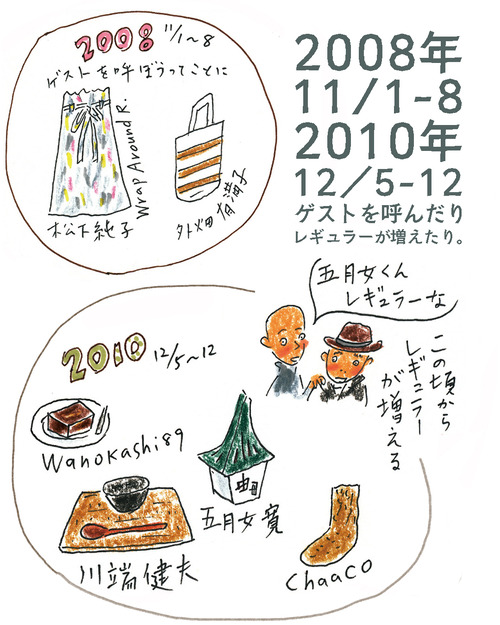 2008 11/1~8
ゲストを呼ぼうってことに
Wrap Around R.
松下純子
外畑有満子
2008年
11/1-8
2010年
12/5-12
ゲストを呼んだり
レギュラーが増えたり。
五月女くん
レギュラーな
この頃から
レギュラー
が増える
2010 12/5~12
Wanokashi89
五月女寛
川端健夫
Chaaco